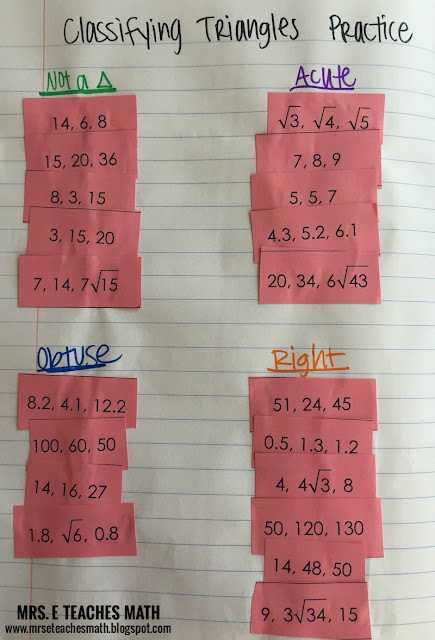 Classifying Triangles Practice
Not a Δ
14, 6, 8
15, 20, 36
8, 3, 15
3, 15, 20
7, 14, 7√15
Acute
√3, √4, √5
7, 8, 9
5, 5, 7
4.3, 5.2, 6.1
20, 34, 6√43
Obtuse
8.2, 4.1, 12.2
100, 60, 50
14, 16, 27
1.8, √6, 0.8
Right
51, 24, 45
0.5, 1.3, 1.2
4, 4√3, 8
50, 120, 130
14, 48, 50
9, 3√34, 15
MRS. E TEACHES MATH
www.mrseteachesmath.blogspot.com